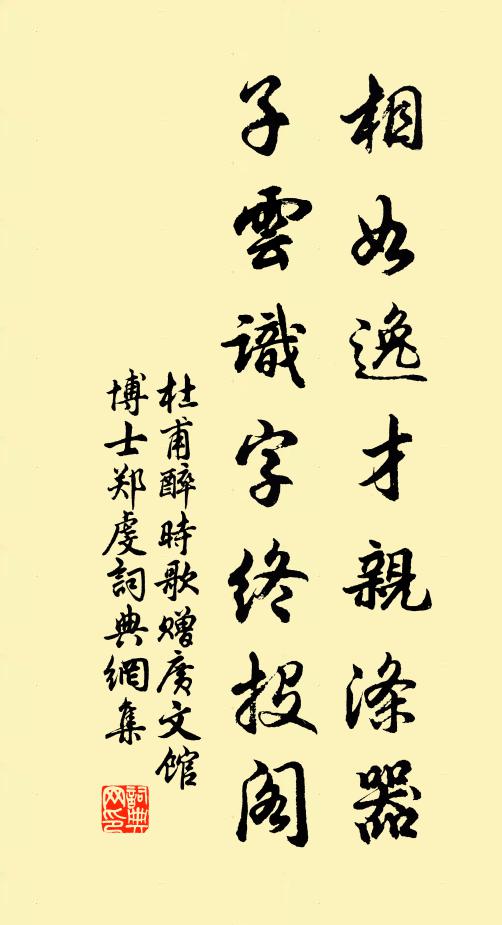 相如逸才親滌器
子雲識字終投閣
杜甫醉時歌赠廣文館
博士郑虔詞典網集
詞典网印